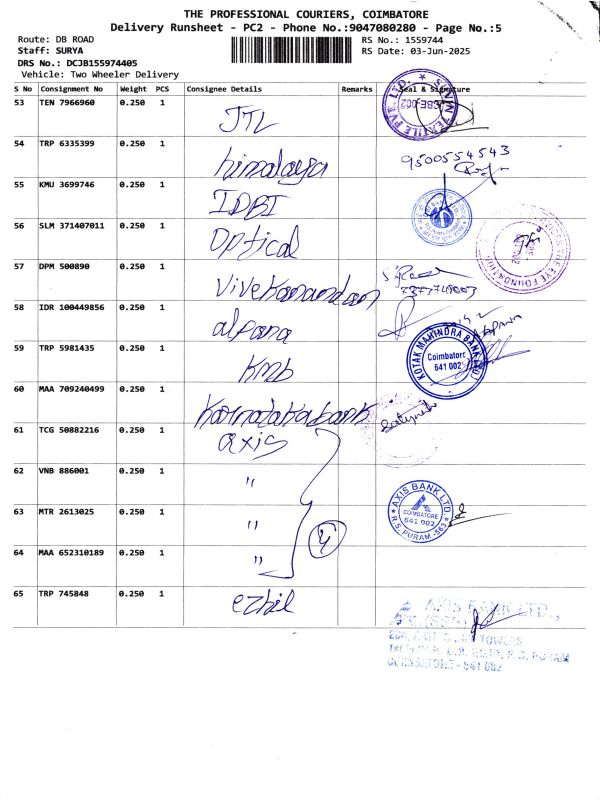 THE PROFESSIONAL COURIERS, COIMBATORE
Delivery Runsheet - PC2 - Phone No.:9047080280 - Page No.:5
Route: DB ROAD
RS No.: 1559744
Staff: SURYA
RS Date: 03-Jun-2025
DRS No.: DCJB155974405
Vehicle: Two Wheeler Delivery
S No Consignment No Weight PCS Consignee Details Remarks Seal & Signature
53 TEN 7966960 0.250 1 JTL
54 TRP 6335399 0.250 1 himalaya 9500554543
55 KMU 3699746 0.250 1 IDBI
56 SLM 371407011 0.250 1 Optical
57 DPM 500890 0.250 1 Vivekanandan
58 IDR 100449856 0.250 1 alfana
59 TRP 5981435 0.250 1 KMB KOTAK MAHINDRA BANK Coimbatore 641 002
60 MAA 709240499 0.250 1 Karnataka bank
61 TCG 50882216 0.250 1 axis
62 VNB 886001 0.250 1 "
63 MTR 2613025 0.250 1 " AXIS BANK LTD COIMBATORE 641 002 R.S. PURAM-563
4
64 MAA 652310189 0.250 1 "
65 TRP 745848 0.250 1 ezhil
AXIS BANK LTD
TOWERS
R. S. PURAM
COIMBATORE - 641 002